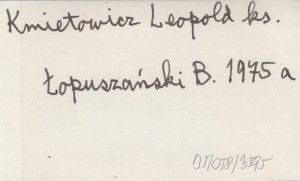 Kmietowicz Leopold ks.
Łopuszański B. 1975 a
BT/078/3595